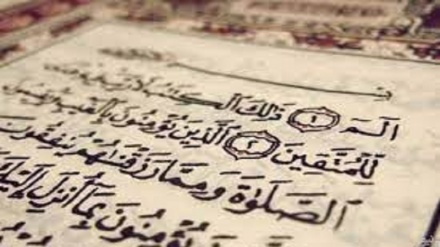 الٓمٓ ١ ذَٰلِكَ ٱلْكِتَٰبُ لَا رَيْبَ
لِّلْمُتَّقِينَ ٢ ٱلَّذِينَ يُؤْمِنُونَ بِٱلْغَيْبِ
ٱلصَّلَوٰةَ وَمِمَّا رَزَقْنَٰهُمْ يُنفِقُونَ
يُؤْمِنُونَ بِمَآ أُنزِلَ إِلَيْكَ